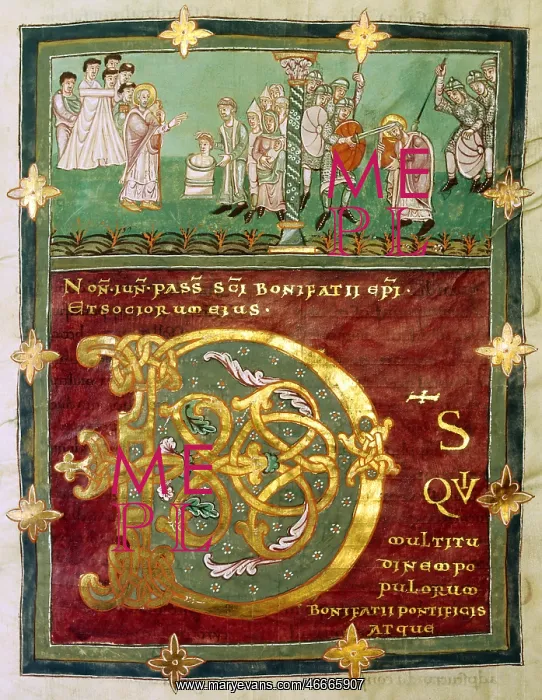 ME
PL
NOÑ·IUÑ·PASS̄ SC̄I BONIFATII EP̄I·
ETSOCIORUMEIUS·
D
S
QV
ME
PL
MULTITU
DINEMPO
PULORUM
BONIFATII PONTIFICIS
ATQUE
www.maryevans.com/46665907